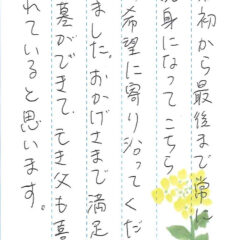 最初から最後まで常に
親身になってこちら
希望に寄り沿ってくだ
ました。おかげさまで満足
墓ができて、亡き父も喜
れていると思います。